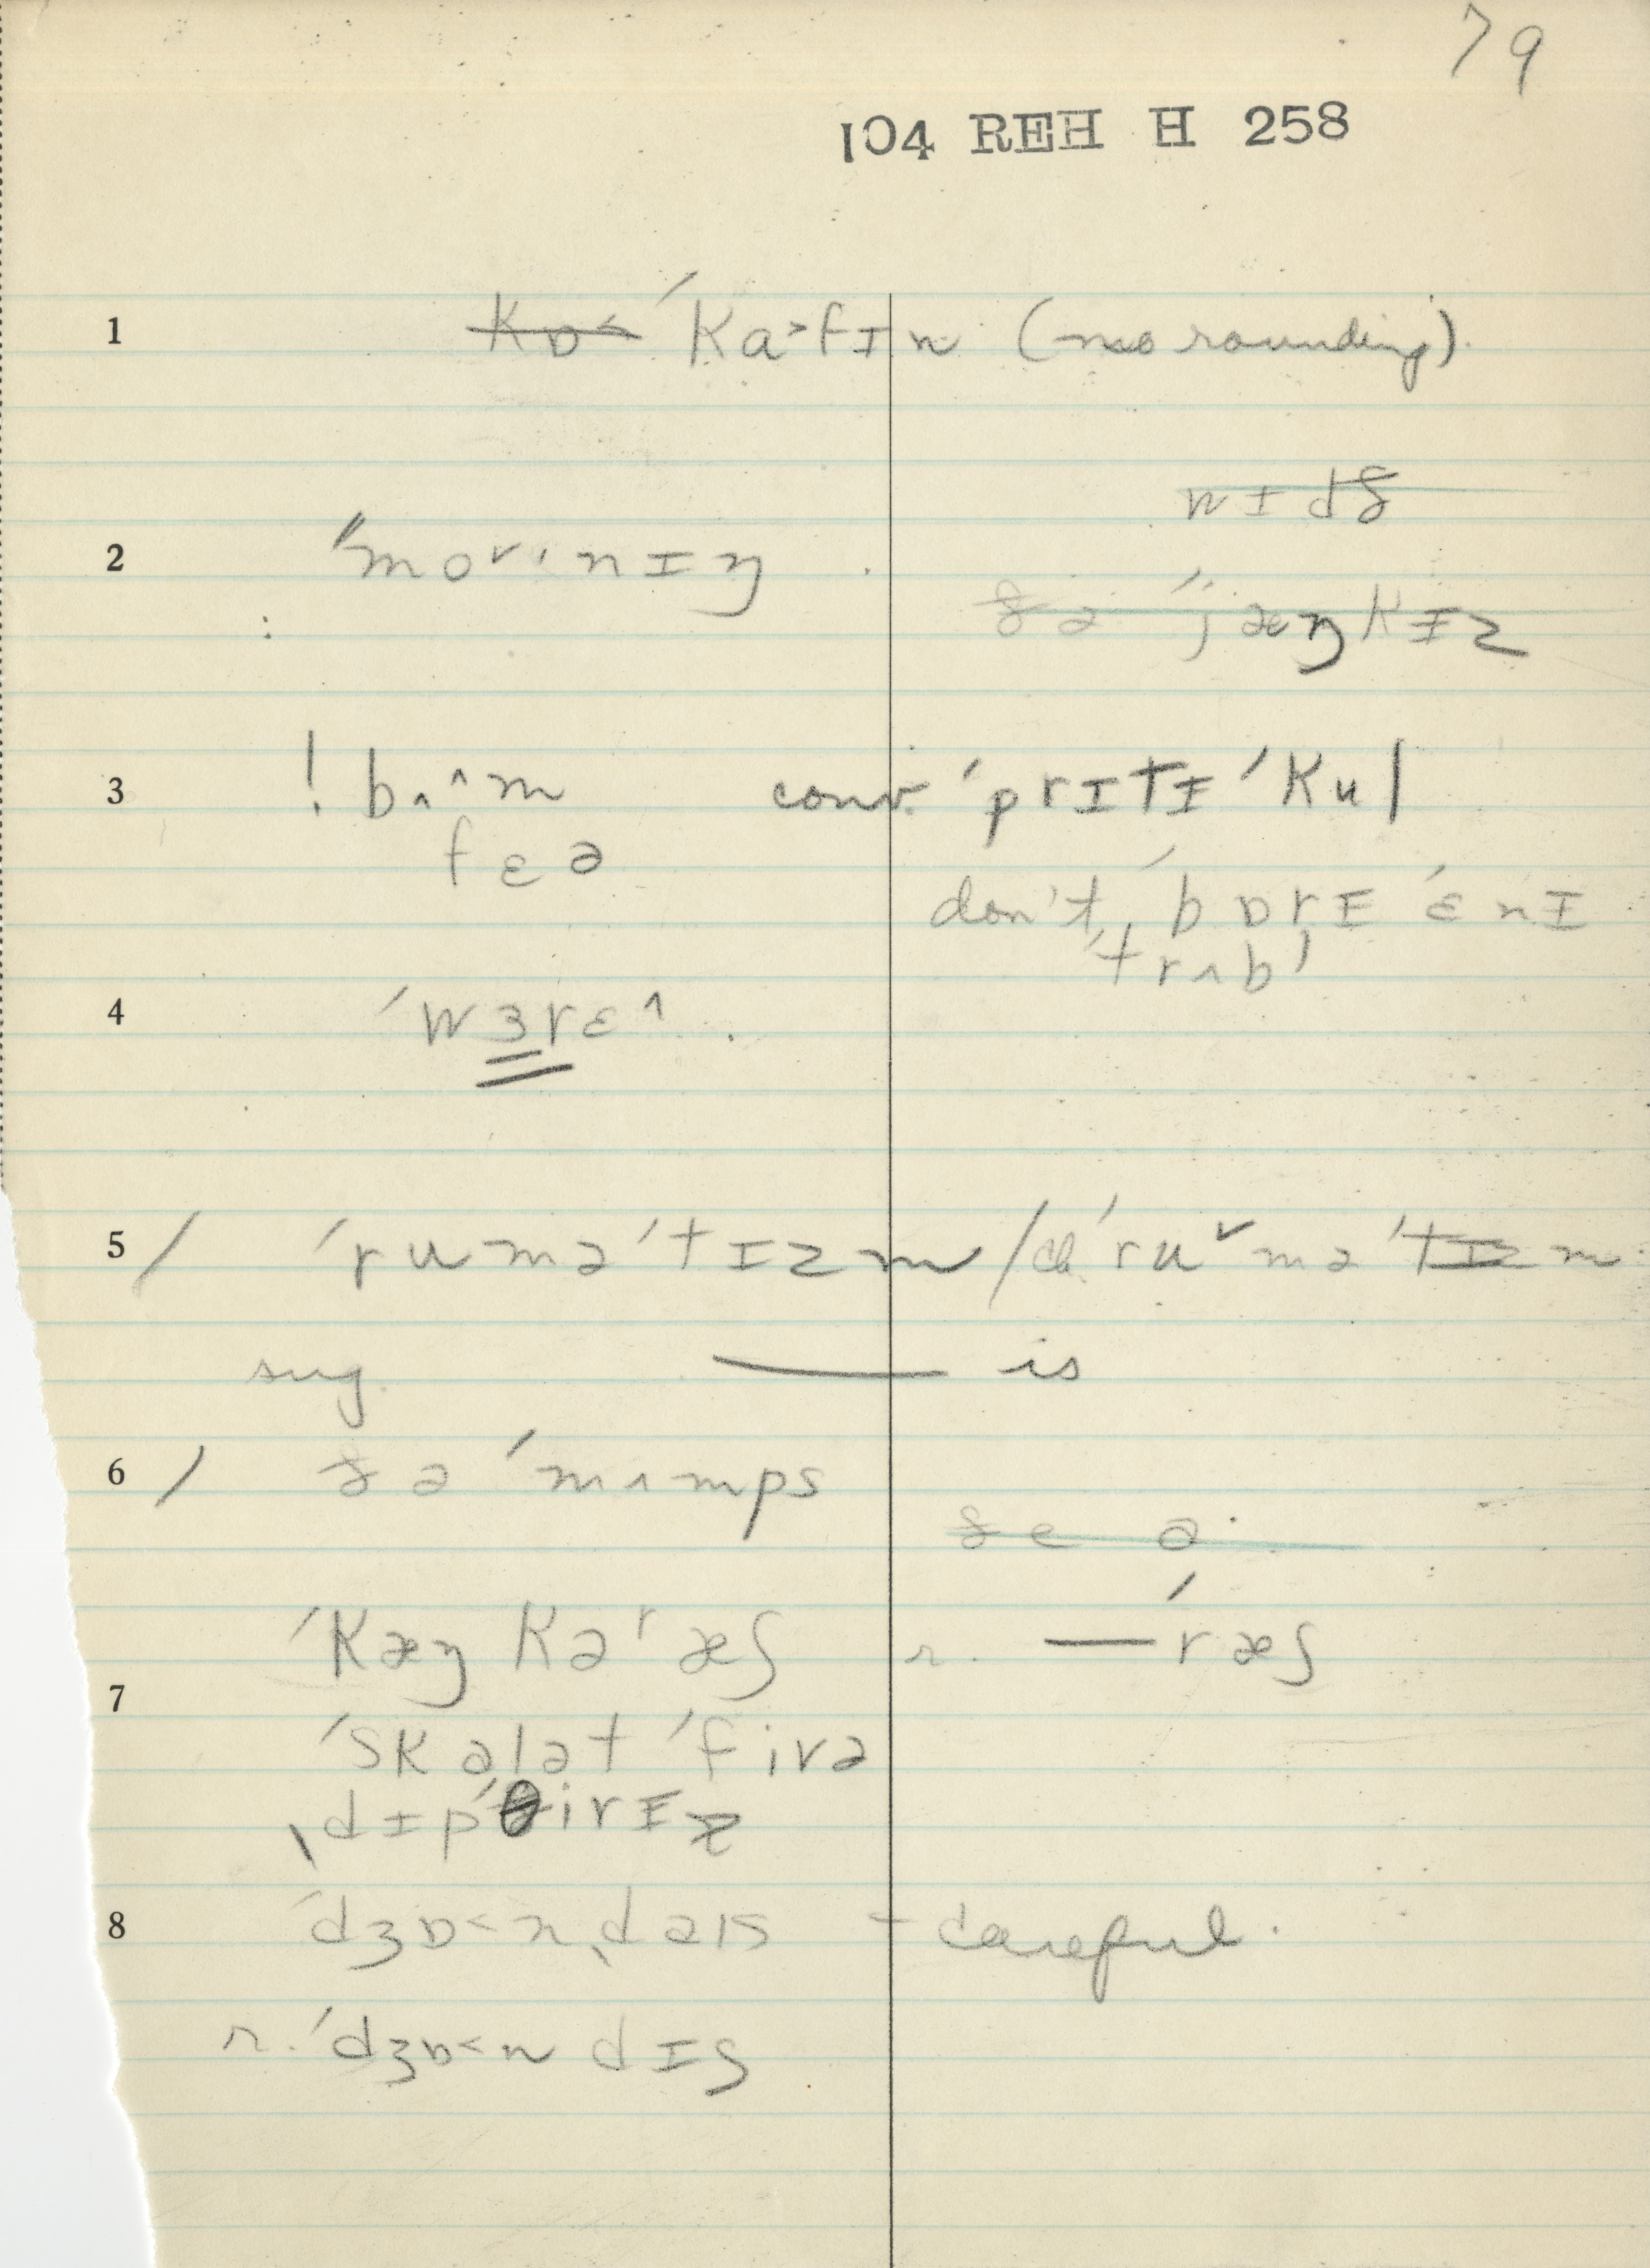 79
104 REH H 258
1 ˈkɑ˃fɪn (no rounding).
wɪdð
2 ˈˈmoᵛˈnɪŋ
ðə ˈˈjæŋkɪz
3 ! bʌ^m conv. ˈprɪtɪ ˈkul
fɛə
don't ˈbɒrɪ ˈɛnɪ
ˈtrʌbl
4 ˈwɜrɛ^
5 / ˈruməˈtɪzm / ch. ˈruᵛməˈtɪzm
sug — is
6 / ðə ˈmʌmps
ðe ə
ˈkæŋkəˈræʃ r. —ˈræʃ
7
ˈskalət ˈfivə
ˌdɪpˈθirɪə
8 ˈdʒɒ˂nˌdəɪs - careful.
r. ˈdʒɒ˂ndɪs